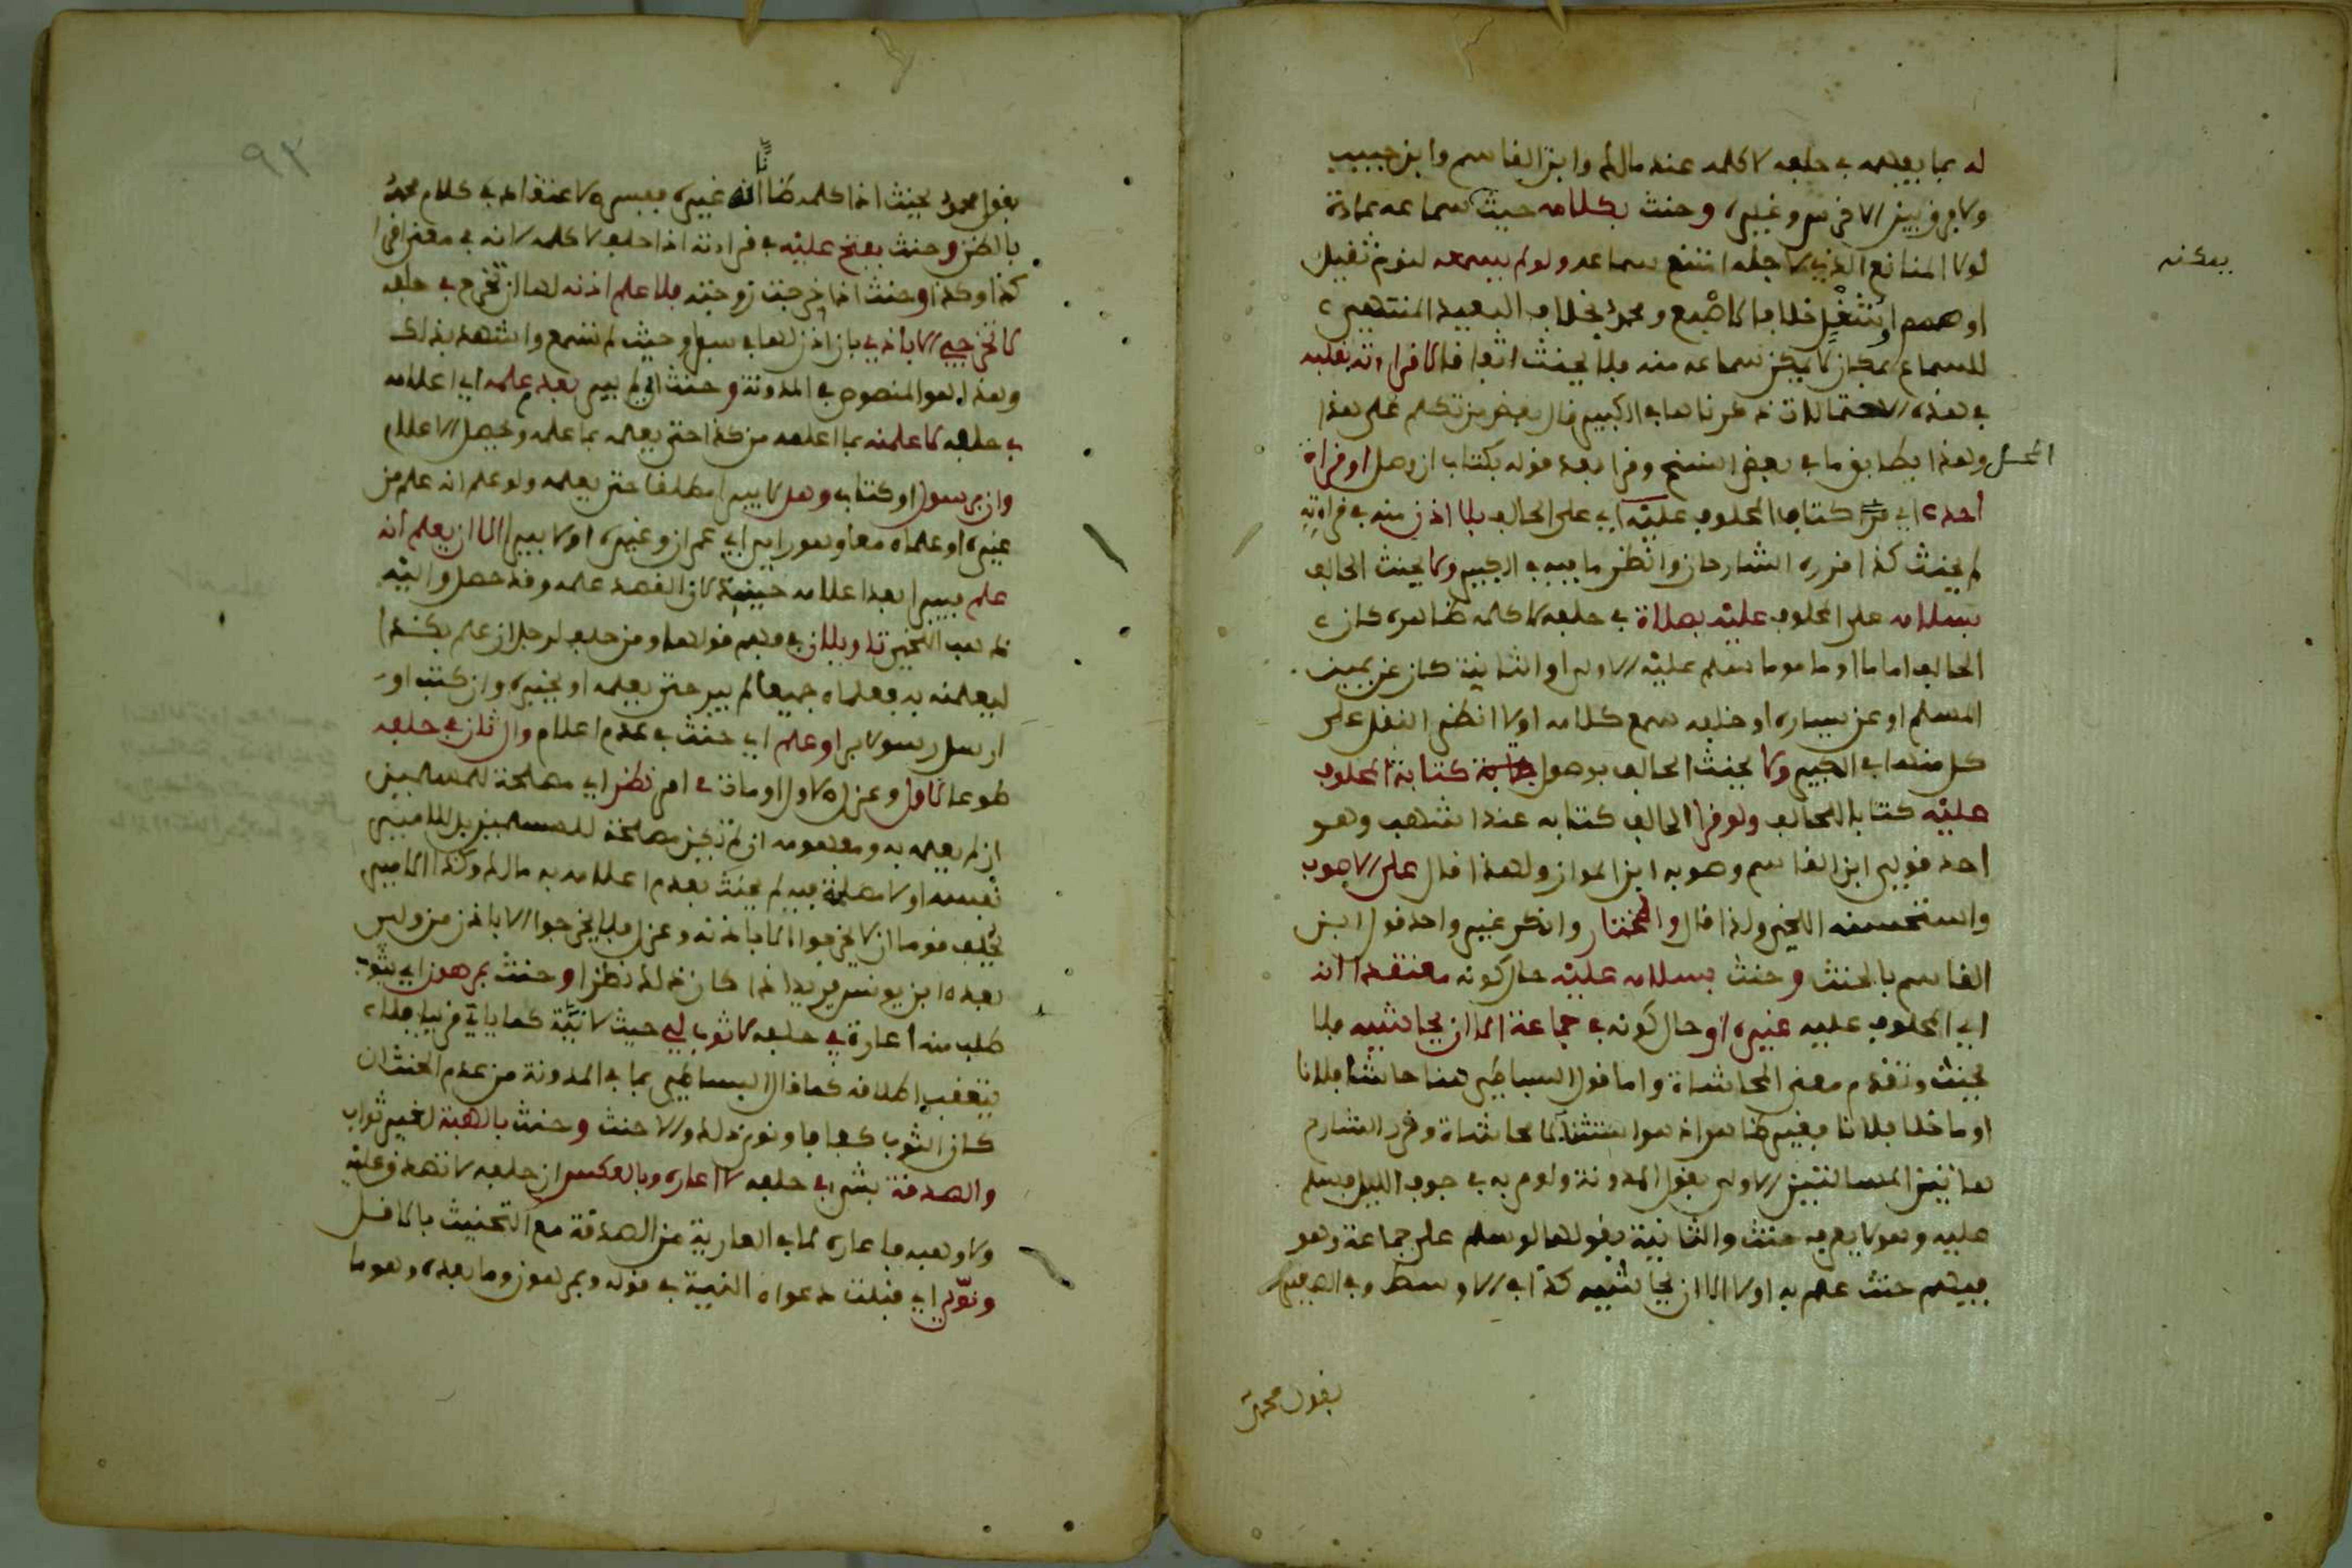 له بما يفهمه في حلفه لا كلمه عند مالك وابن القاسم وابن حبيب
ولا فرق بين الاخرس وغيره وحنث بكلامه حيث سماعه عادة
لولا المانع الذي لاجله امتنع سماعه ولو لم يسمعه لنوم ثقيل
او صمم او شغل خلافا لاصبغ ومحمد بخلاف البعيد المنتهي
للسماع بمكان لا يمكن سماعه منه فلا يحنث اتفاقا لا قراءته بقلبه
في هذه الاحتمالات ذكرناها في الكبير قال بعض من تكلم على هذا
المحل وهذا يطابق ما في بعض النسخ وقرا بعد قوله بكتاب ان وصل او قراة
احد اي قرا كتاب المحلوف عليه اي على الحالف بلا اذن منه في قراءته
لم يحنث كذا قرره الشارحان وانظر ما فيه في الكبير ولا يحنث الحالف
بسلامه على المحلوف عليه بصلاة في حلفه لا كلمه ظاهره كان
الحالف اماما او ماموما سلم عليه الاولى او الثانية كان عن يمين
المسلم او عن يساره او خلفه سمع كلامه اولا انظر النقل على
كل منها في الكبير ولا يحنث الحالف بوصول كتابة المحلوف
عليه كتابا للحالف ولو قرا الحالف كتابه عند اشهب وهو
احد قولي ابن القاسم وصوبه ابن المواز ولهذا قال على الاصوب
واستحسنه اللخمي ولذا قال والمختار وانكر غير واحد قول ابن
القاسم بالحنث وحنث بسلامه عليه حال كونه معتقدا انه
اي المحلوف عليه غيره او حال كونه في جماعة الا ان يحاشيه فلا
يحنث وتقدم معنى المحاشاة واما قول البساطي هنا حاشا فلانا
او ما خلا فلانا فغير ظاهر اذ هو استثنا لا محاشاة وقرر الشارح
هاتين المسالتين الاولى بقول المدونة ولو مر به في جوف الليل فسلم
عليه وهو لا يعرفه حنث والثانية بقولها لو سلم على جماعة وهو
فيهم حنث علم به اولا الا ان يحاشيه كذا في الاوسط وفي الصغير
بقول محمد
يمكنه
٩٣
بقول محمد يحنث اذا كلمه ظانا انه غيره ففسره لاعتقاده في كلام محمد
بالظن وحنث بفتح عليه في قراءته اذا حلف لا كلمه لانه في معنى اقرا
كذا وكذا وحنث اذا خرجت زوجته بلا علم اذنه لها ان تخرج في حلفه
لا تخرجي الا باذني بان اذن لها في سفر وحيث لم تسمع واشهد بذلك
وهذا هو المنصوص في المدونة وحنث اي لم يبر بعدم علمه اي اعلامه
في حلفه لاعلمنه بما اعلمه من كذا حتى يعلمه بما علمه ويحصل الاعلام
وان برسول او كتاب وهل لا يبر مطلقا حتى يعلمه ولو علم انه علم من
غيره او علماه معا وهو راي ابي عمران وغيره او لا يبر الا ان يعلم انه
علم فيبر بعدم اعلامه حينئذ لان القصد علمه وقد حصل واليه
ذهب اللخمي تاويلان في فهم قولها ومن حلف لرجل ان علم بكذا
ليعلمنه به فعلماه جميعا لم يبر حتى يعلمه او يخبره وان كتب او
ارسل رسولا بر او علم اي حنث في عدم اعلام وال ثان في حلفه
طوعا لاول وعزل الاول او مات في امر نظر اي مصلحة للمسلمين
ان لم يعلمه به ومفهومه ان لم تكن مصلحة للمسلمين بل للامير
نفسه اولا مصلحة فيه لم يحنث بعدم اعلامه به مالك وكذا الامير
يحلف قوما ان لا يخرجوا الا باذنه وعزل فلا يخرجوا الا باذن من ولي
بعده ابن يونس يريد اذا كان ذلك نظرا وحنث بمرهون اي بثوب
طلب منه اعارة في حلفه لا ثوب لي حيث لا نية كما ياتي قريبا فلا
يتعقب اطلاقه كما قال البساطي بما في المدونة من عدم الحنث ان
كان الثوب كفافا ونوى ذلك والا حنث وحنث بالهبة لغير ثواب
والصدقة بشي في حلفه لا اعاره وبالعكس ان حلف لا تصدق عليه
ولا وهبه فاعاره لما في العارية من الصدقة مع التحنيث بالاقل
ونوي اي قبلت دعواه النية في قوله وبمرهون وما بعده وهو ما